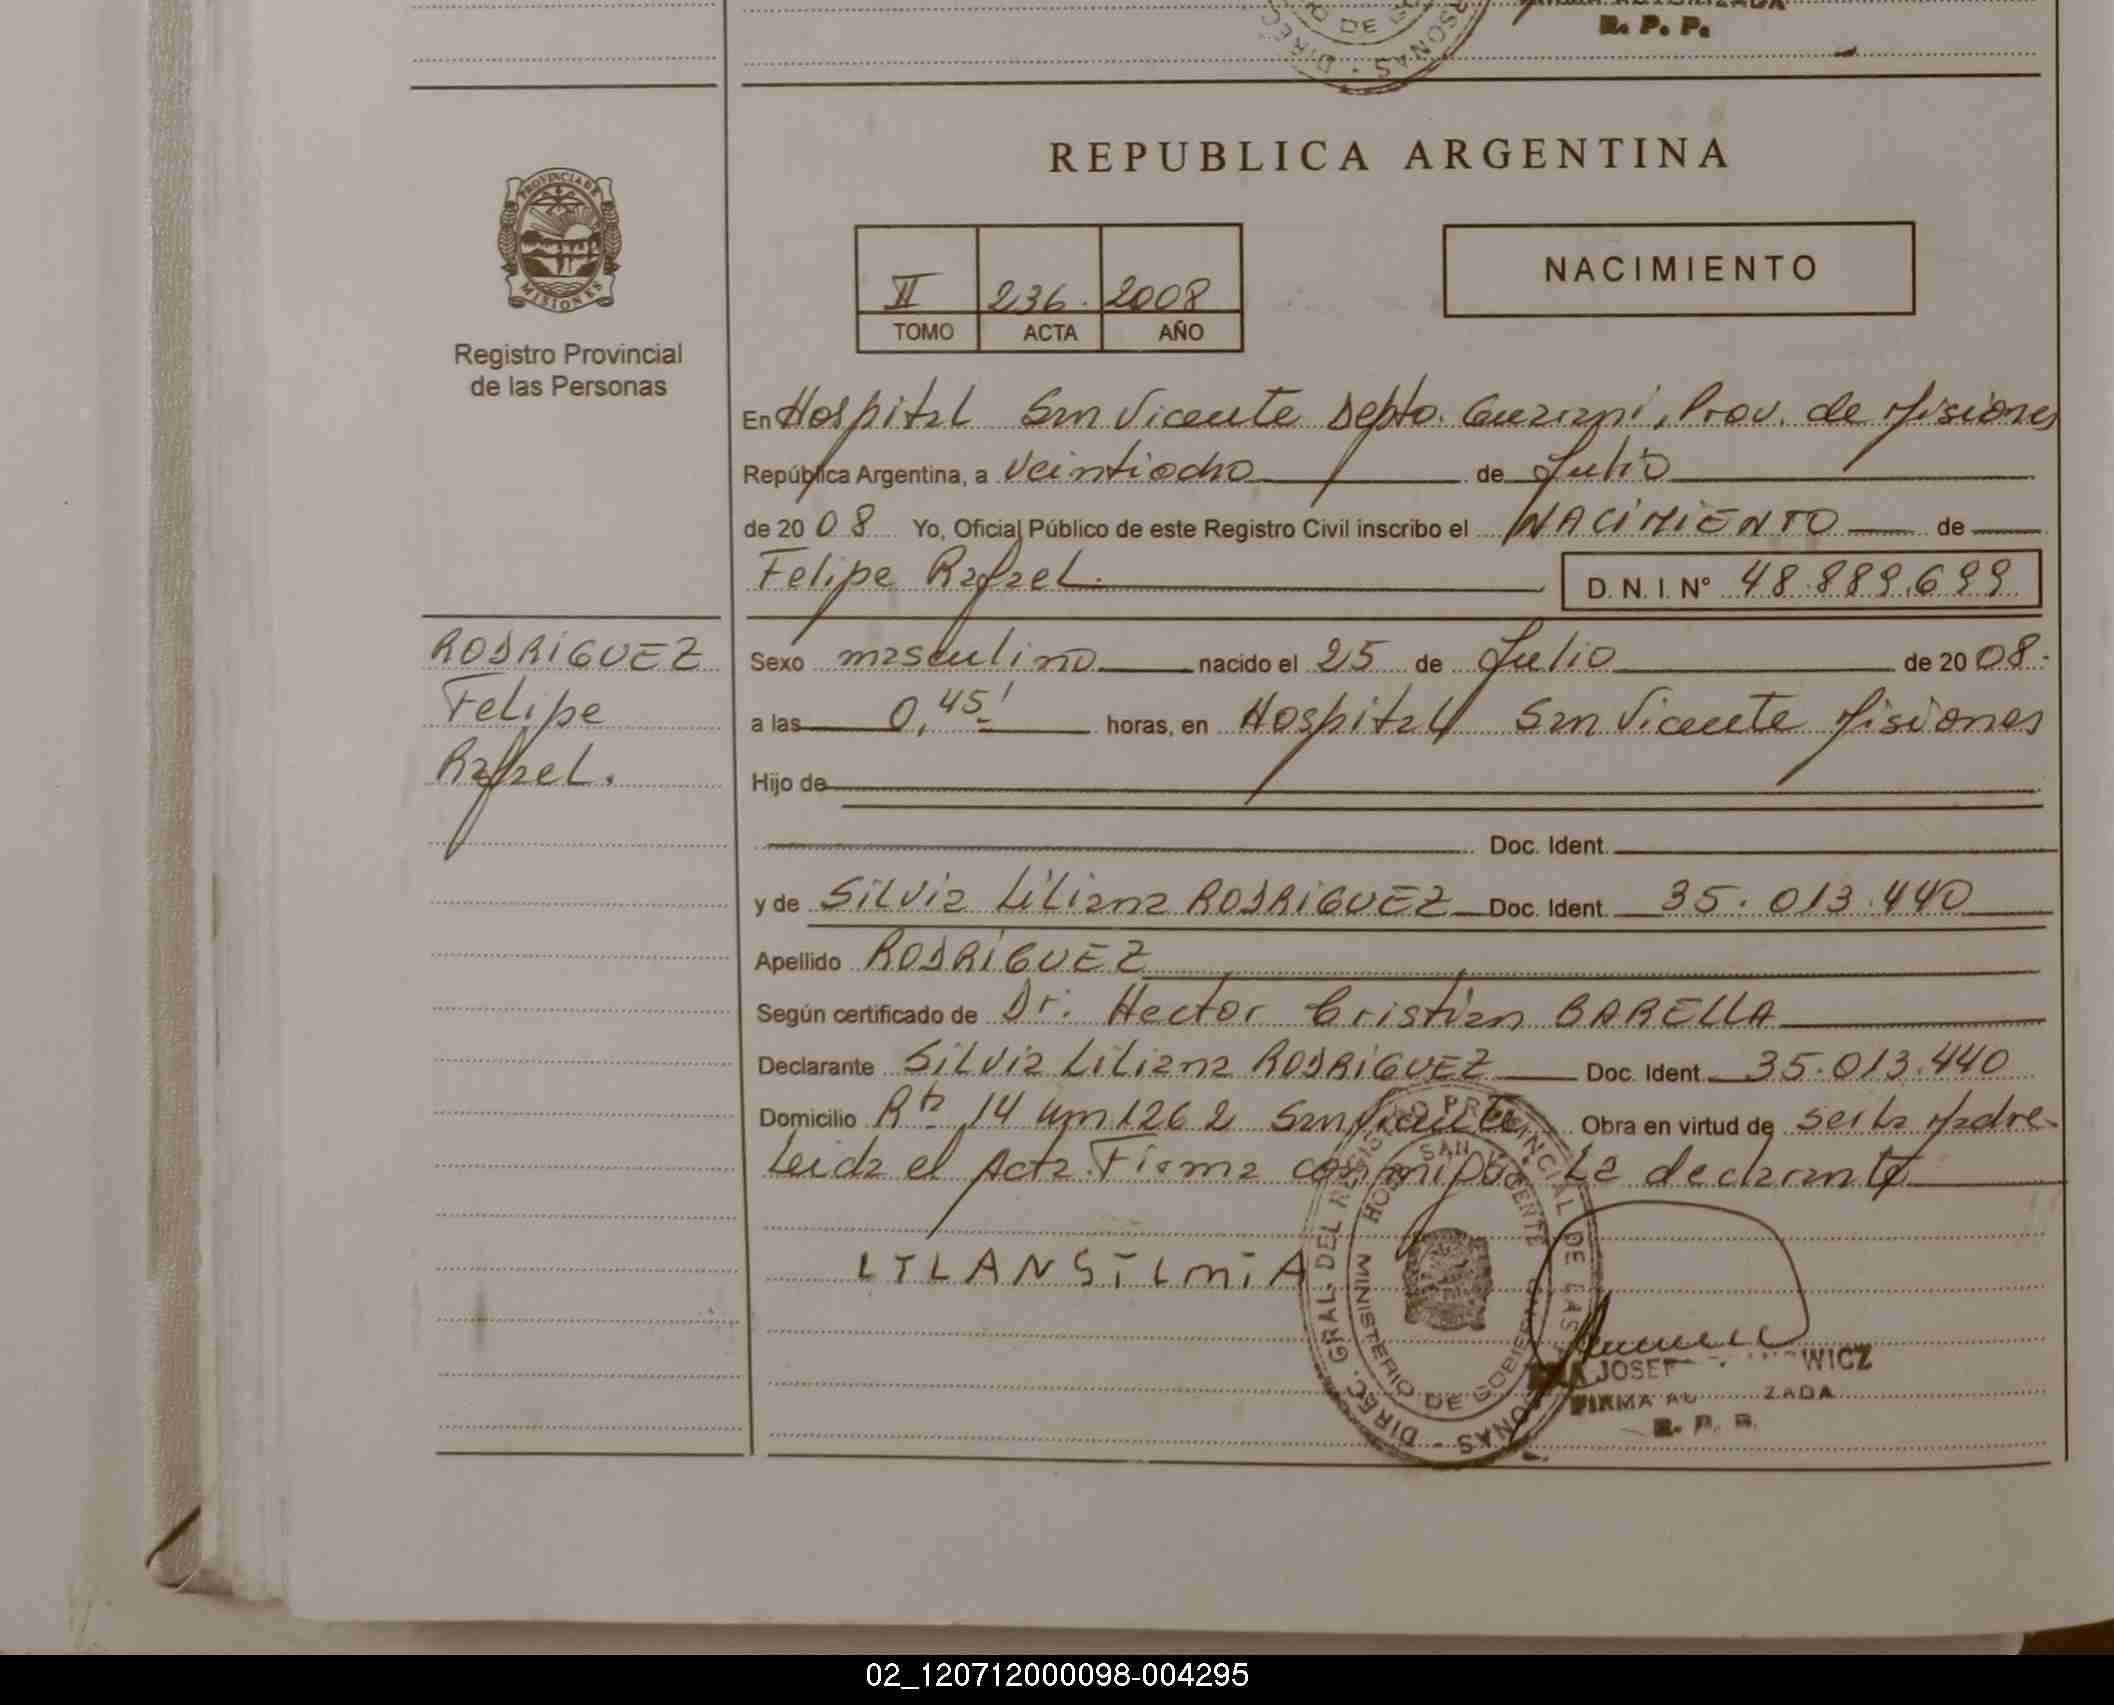 R. P. P.
REPUBLICA ARGENTINA
PROVINCIA DE
MISIONES
Registro Provincial
de las Personas
II 236. 2008
TOMO ACTA AÑO
NACIMIENTO
En Hospital San Vicente Depto. Guarani, Prov. de Misiones
República Argentina, a veintiocho de Julio
de 20 08 Yo, Oficial Público de este Registro Civil inscribo el NACIMIENTO de
Felipe Rafael. D. N. I. Nº 48.889.699
RODRIGUEZ
Felipe
Rafael.
Sexo masculino nacido el 25 de Julio de 20 08.
a las 0,45' horas, en Hospital San Vicente Misiones
Hijo de
Doc. Ident.
y de Silvia Liliana RODRIGUEZ Doc. Ident. 35.013.440
Apellido RODRIGUEZ
Según certificado de Dr. Hector Cristian BARELLA
Declarante Silvia Liliana RODRIGUEZ Doc. Ident. 35.013.440
Domicilio Rta 14 Km 1262 San Vicente Obra en virtud de ser la Madre.
Leida el Acta. Firma conmigo La declarante
LILANSILMIA
DIREC. GRAL. DEL REGISTRO PROVINCIAL DE LAS PERSONAS
HOSP. SAN VICENTE
MINISTERIO DE GOBIERNO
JOSEF WICZ
FIRMA AU ZADA
R. P. P.
02_120712000098-004295